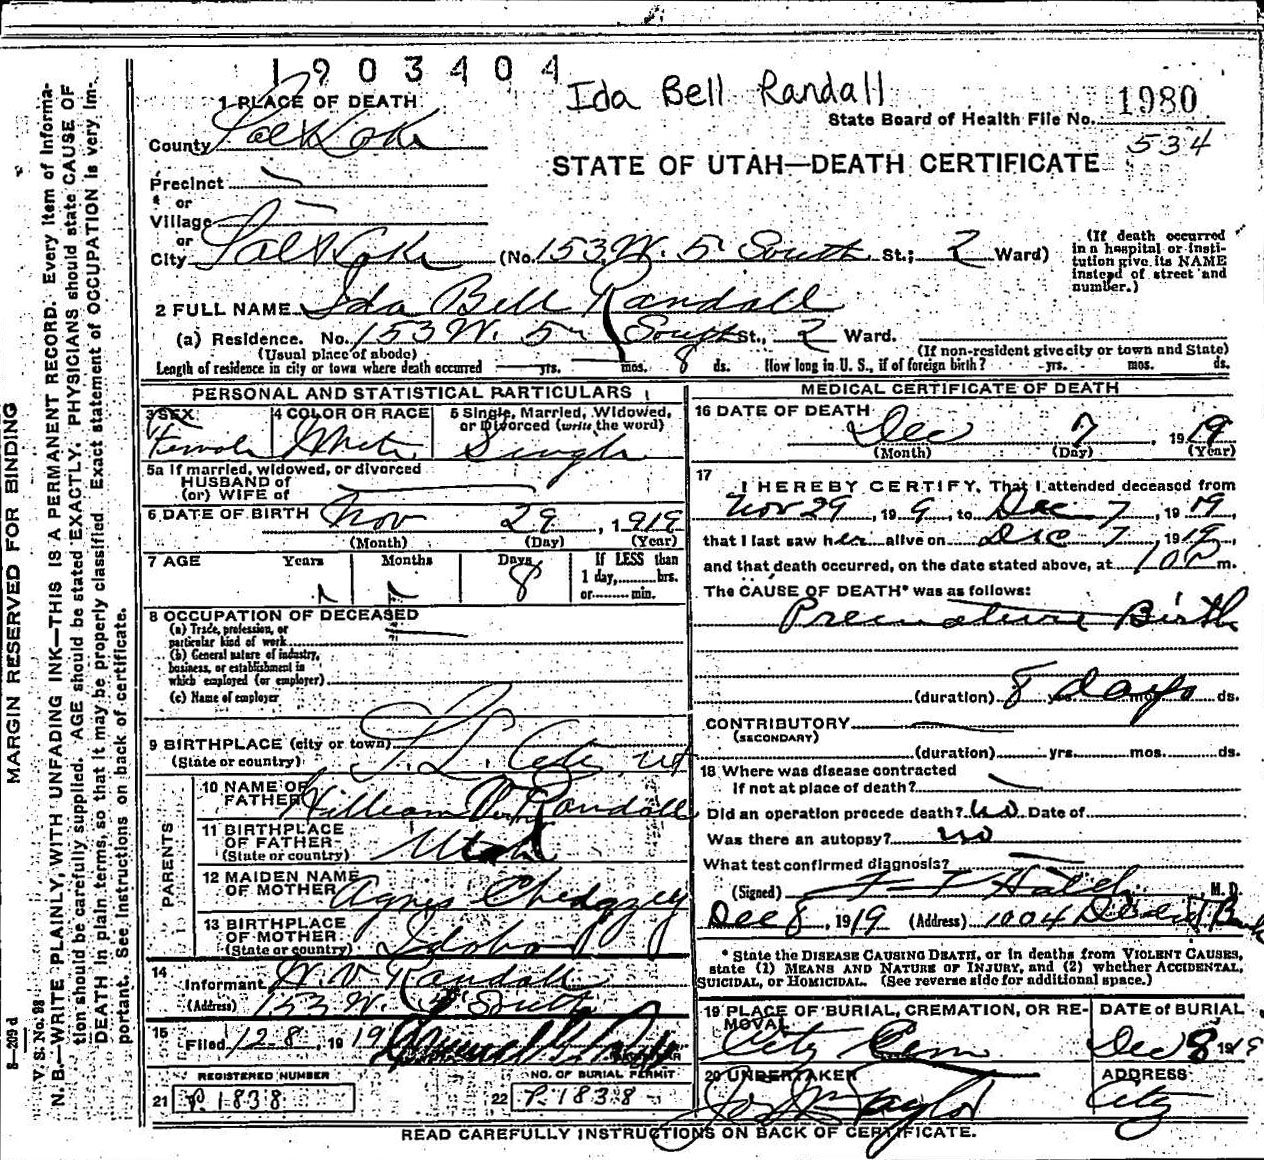 1903404
Ida Bell Randall
1 PLACE OF DEATH
State Board of Health File No. 1980
534
County Salt Lake
STATE OF UTAH—DEATH CERTIFICATE
Precinct
or
Village
or
City Salt Lake (No. 153 W. 5 South St.; 2 Ward)
(If death occurred in a hospital or institution give its NAME instead of street and number.)
2 FULL NAME Ida Bell Randall
(a) Residence. No. 153 W. 5 South St., 2 Ward.
(Usual place of abode) (If non-resident give city or town and State)
Length of residence in city or town where death occurred yrs. mos. 8 ds. How long in U. S., if of foreign birth? yrs. mos. ds.
PERSONAL AND STATISTICAL PARTICULARS
3 SEX
Female
4 COLOR OR RACE
White
5 Single, Married, Widowed, or Divorced (write the word)
Single
5a If married, widowed, or divorced
HUSBAND of
(or) WIFE of
6 DATE OF BIRTH Nov 29, 1919
(Month) (Day) (Year)
7 AGE Years Months Days If LESS than
8 1 day, hrs.
or min.
8 OCCUPATION OF DECEASED
(a) Trade, profession, or
particular kind of work
(b) General nature of industry,
business, or establishment in
which employed (or employer)
(c) Name of employer
9 BIRTHPLACE (city or town) S. L. City, Ut
(State or country)
PARENTS
10 NAME OF FATHER William Randall
11 BIRTHPLACE OF FATHER Utah
(State or country)
12 MAIDEN NAME OF MOTHER Agnes Chedgzey
13 BIRTHPLACE OF MOTHER
(State or country) Idaho
14
Informant W. V. Randall
(Address) 153 W. 5 South
15
Filed 12-8, 1919
REGISTRAR
REGISTERED NUMBER NO. OF BURIAL PERMIT
21 P. 1838 22 P. 1838
MEDICAL CERTIFICATE OF DEATH
16 DATE OF DEATH
Dec 7, 1919
(Month) (Day) (Year)
17
I HEREBY CERTIFY, That I attended deceased from
Nov 29, 19 9, to Dec 7, 1919,
that I last saw her alive on Dec 7, 1919,
and that death occurred, on the date stated above, at 10 P m.
The CAUSE OF DEATH* was as follows:
Premature Birth
(duration) 8 yrs. mos. days ds.
CONTRIBUTORY
(SECONDARY)
(duration) yrs. mos. ds.
18 Where was disease contracted
If not at place of death?
Did an operation precede death? no Date of
Was there an autopsy? no
What test confirmed diagnosis?
(Signed) Hatch, M. D.
Dec 8, 1919 (Address) 1004 Deseret Bank
* State the DISEASE CAUSING DEATH, or in deaths from VIOLENT CAUSES,
state (1) MEANS AND NATURE OF INJURY, and (2) whether ACCIDENTAL,
SUICIDAL, or HOMICIDAL. (See reverse side for additional space.)
19 PLACE OF BURIAL, CREMATION, OR REMOVAL
City Cem
DATE OF BURIAL
Dec 8 1919
20 UNDERTAKER
Taylor
ADDRESS
City
READ CAREFULLY INSTRUCTIONS ON BACK OF CERTIFICATE.
MARGIN RESERVED FOR BINDING
8—209 d
V. S. No. 98
N. B.—WRITE PLAINLY, WITH UNFADING INK—THIS IS A PERMANENT RECORD. Every item of Information should be carefully supplied. AGE should be stated EXACTLY. PHYSICIANS should state CAUSE OF DEATH in plain terms, so that it may be properly classified. Exact statement of OCCUPATION is very important. See instructions on back of certificate.